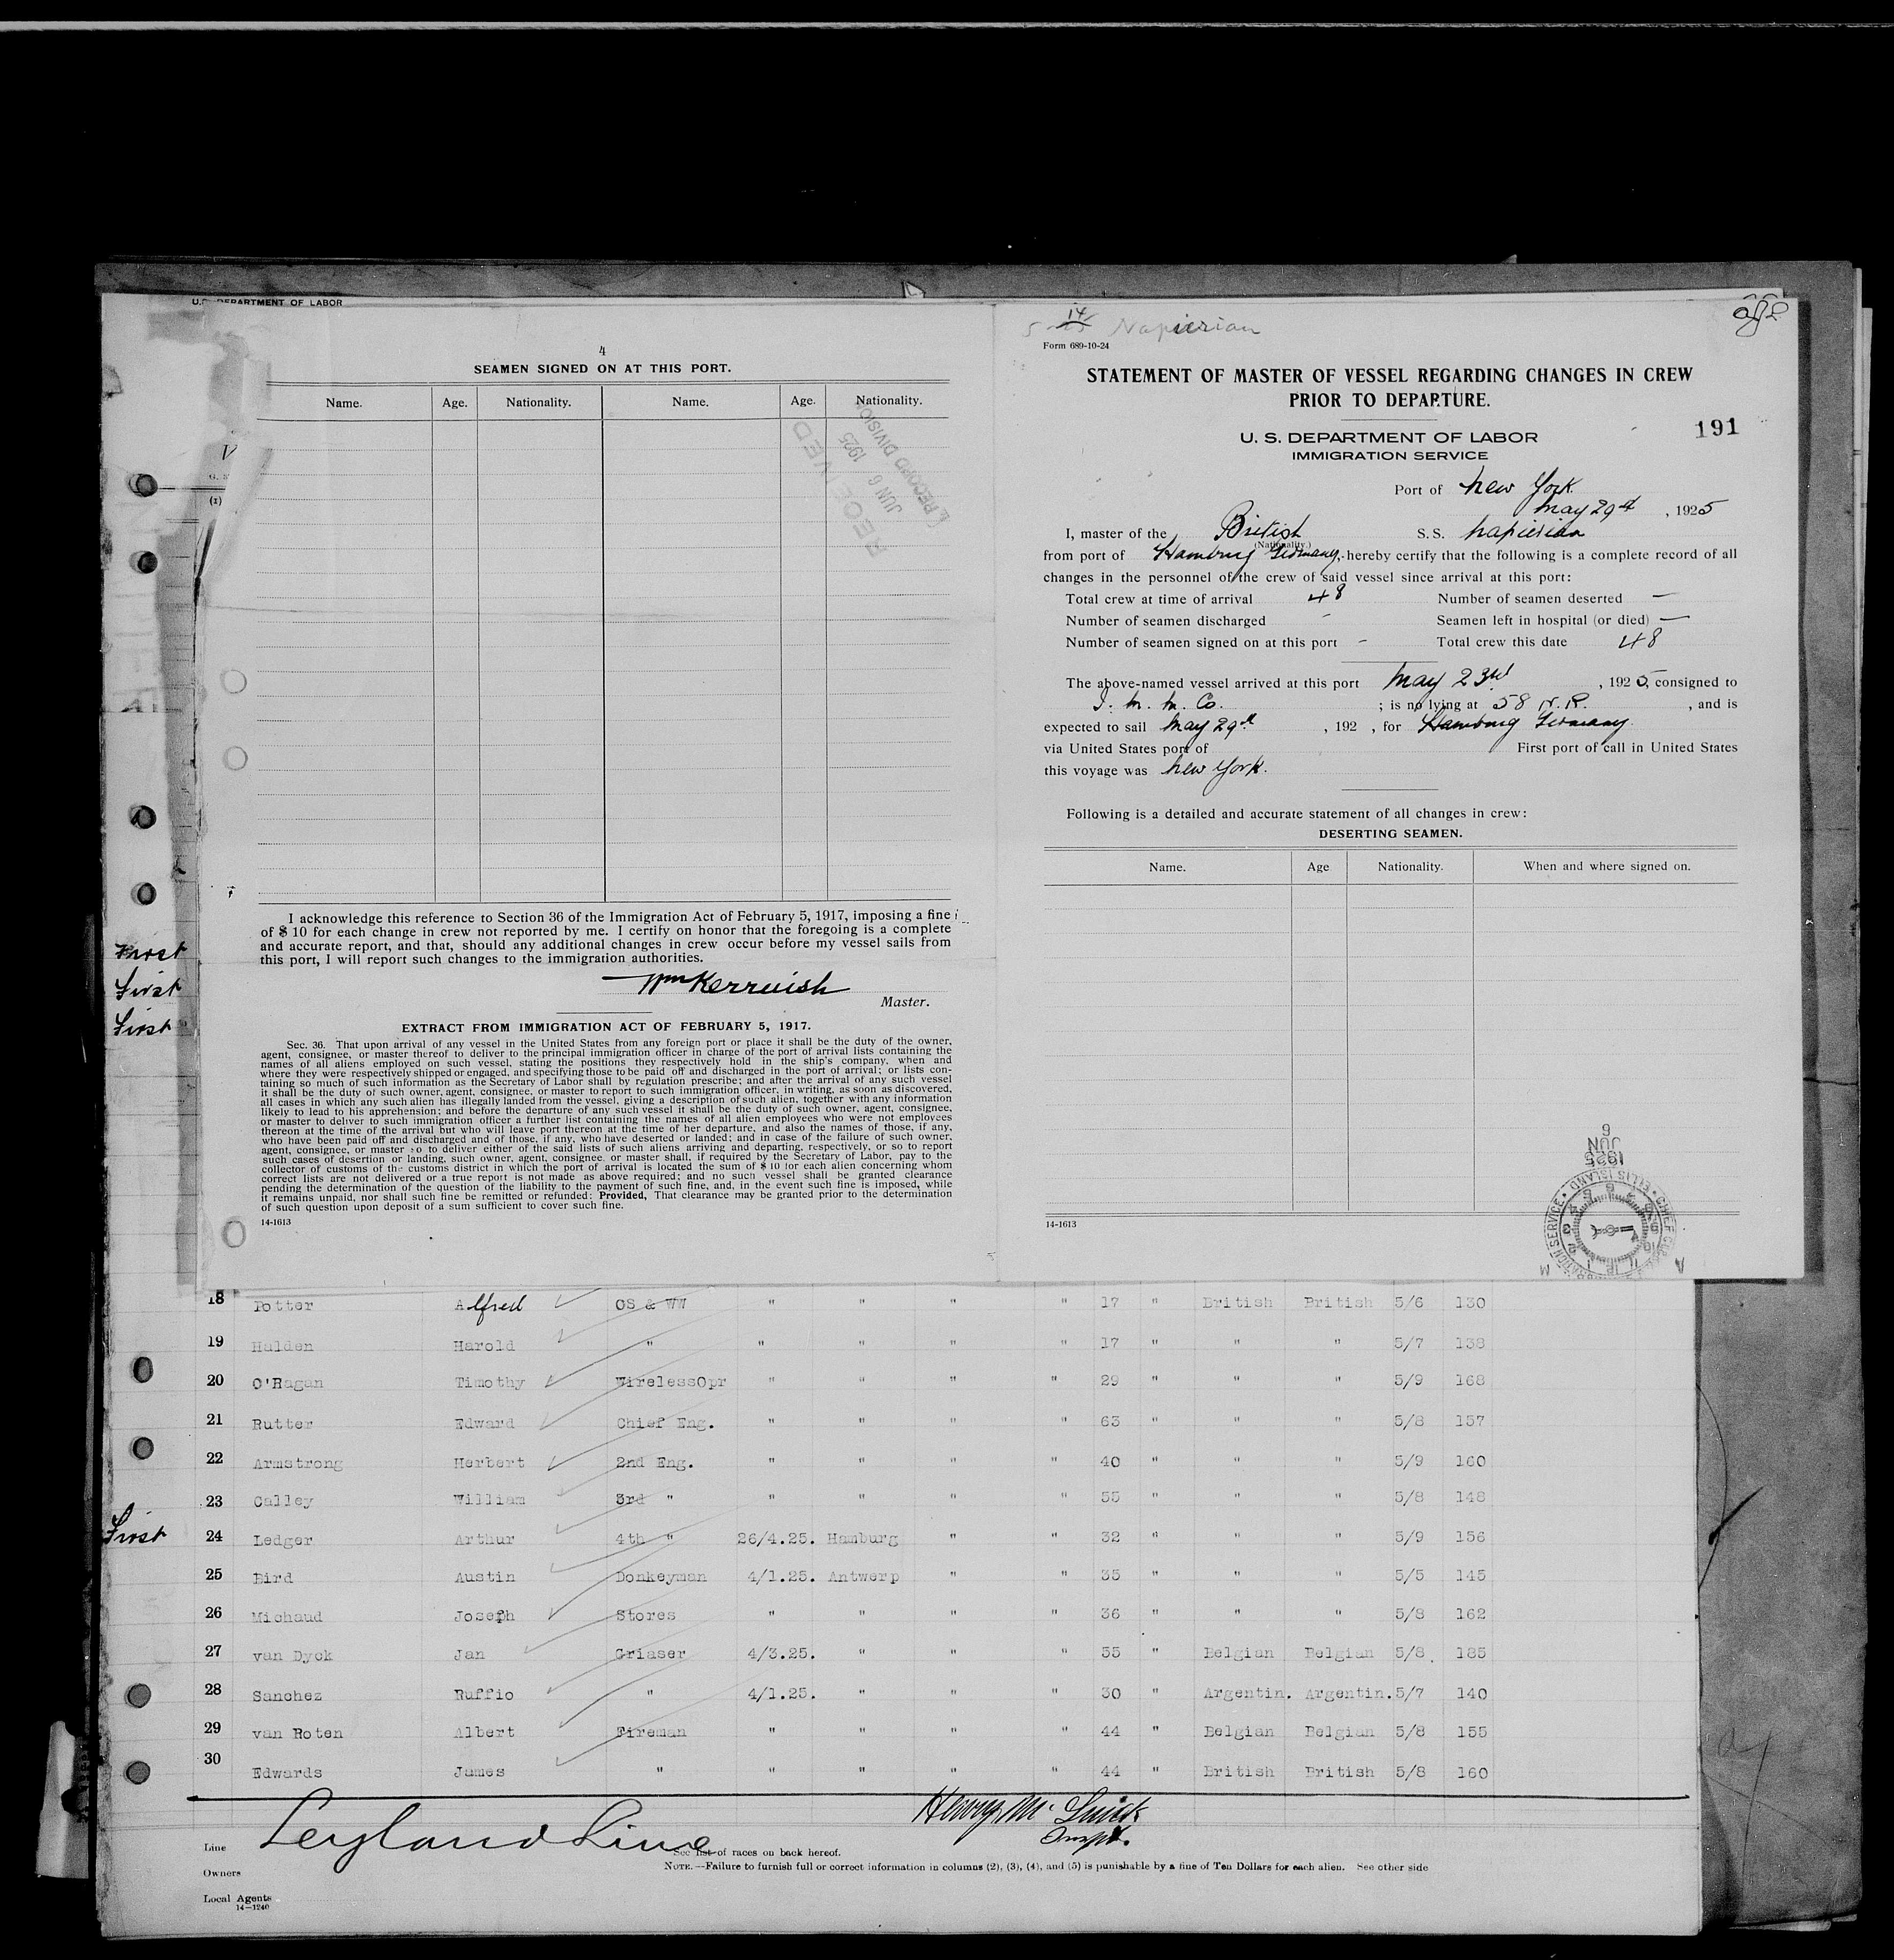 U.S. DEPARTMENT OF LABOR
4
SEAMEN SIGNED ON AT THIS PORT.
Name. Age. Nationality. Name. Age. Nationality.
RECEIVED
JUN 6 1925
RECORD DIVISION
V
(1)
First
First
First
I acknowledge this reference to Section 36 of the Immigration Act of February 5, 1917, imposing a fine
of $10 for each change in crew not reported by me. I certify on honor that the foregoing is a complete
and accurate report, and that, should any additional changes in crew occur before my vessel sails from
this port, I will report such changes to the immigration authorities.
Wm Kerruish
Master.
EXTRACT FROM IMMIGRATION ACT OF FEBRUARY 5, 1917.
Sec. 36. That upon arrival of any vessel in the United States from any foreign port or place it shall be the duty of the owner,
agent, consignee, or master thereof to deliver to the principal immigration officer in charge of the port of arrival lists containing the
names of all aliens employed on such vessel, stating the positions they respectively hold in the ship's company, when and
where they were respectively shipped or engaged, and specifying those to be paid off and discharged in the port of arrival; or lists con-
taining so much of such information as the Secretary of Labor shall by regulation prescribe; and after the arrival of any such vessel
it shall be the duty of such owner, agent, consignee, or master to report to such immigration officer, in writing, as soon as discovered,
all cases in which any such alien has illegally landed from the vessel, giving a description of such alien, together with any information
likely to lead to his apprehension; and before the departure of any such vessel it shall be the duty of such owner, agent, consignee,
or master to deliver to such immigration officer a further list containing the names of all alien employees who were not employees
thereon at the time of the arrival but who will leave port thereon at the time of her departure, and also the names of those, if any,
who have been paid off and discharged and of those, if any, who have deserted or landed; and in case of the failure of such owner,
agent, consignee, or master so to deliver either of the said lists of such aliens arriving and departing, respectively, or so to report
such cases of desertion or landing, such owner, agent, consignee, or master shall, if required by the Secretary of Labor, pay to the
collector of customs of the customs district in which the port of arrival is located the sum of $10 for each alien concerning whom
correct lists are not delivered or a true report is not made as above required; and no such vessel shall be granted clearance
pending the determination of the question of the liability to the payment of such fine, and, in the event such fine is imposed, while
it remains unpaid, nor shall such fine be remitted or refunded: Provided, That clearance may be granted prior to the determination
of such question upon deposit of a sum sufficient to cover such fine.
14-1613
14 Napierian
Form 689-10-24
STATEMENT OF MASTER OF VESSEL REGARDING CHANGES IN CREW
PRIOR TO DEPARTURE.
U. S. DEPARTMENT OF LABOR
IMMIGRATION SERVICE
191
Port of New York
May 29th, 1925
I, master of the British S. S. Napierian
(Nationality.)
from port of Hamburg Germany, hereby certify that the following is a complete record of all
changes in the personnel of the crew of said vessel since arrival at this port:
Total crew at time of arrival 48 Number of seamen deserted —
Number of seamen discharged - Seamen left in hospital (or died) —
Number of seamen signed on at this port - Total crew this date 48
The above-named vessel arrived at this port May 23rd, 1925, consigned to
I. M. M. Co. ; is no lying at 58 N. R. , and is
expected to sail May 29th, 192 , for Hamburg Germany.
via United States port of First port of call in United States
this voyage was New York.
Following is a detailed and accurate statement of all changes in crew:
DESERTING SEAMEN.
Name. Age Nationality. When and where signed on.
1925
JUN
6
ELLIS ISLAND
14-1613
18 Potter Alfred OS & WW " " " " 17 " British British 5/6 130
19 Halden Harold " " " " " 17 " " " 5/7 138
20 O'Ragan Timothy WirelessOpr " " " " 29 " " " 5/9 168
21 Rutter Edward Chief Eng. " " " " 63 " " " 5/8 157
22 Armstrong Herbert 2nd Eng. " " " " 40 " " " 5/9 160
23 Calley William 3rd " " " " " 55 " " " 5/8 148
First 24 Ledger Arthur 4th " 26/4.25. Hamburg " " 32 " " " 5/9 156
25 Bird Austin Donkeyman 4/1.25. Antwerp " " 35 " " " 5/5 145
26 Michaud Joseph Stores " " " " 36 " " " 5/8 162
27 van Dyck Jan Griaser 4/3.25. " " " 55 " Belgian Belgian 5/8. 185
28 Sanchez Ruffio " 4/1.25. " " " 30 " Argentin. Argentin. 5/7 140
29 van Roten Albert Fireman " " " " 44 " Belgian Belgian 5/8 155
30 Edwards James " " " " " 44 " British British 5/8 160
Line Leyland Line
See list of races on back hereof.
Owners
NOTE.—Failure to furnish full or correct information in columns (2), (3), (4), and (5) is punishable by a fine of Ten Dollars for each alien. See other side
Local Agents
14-1240